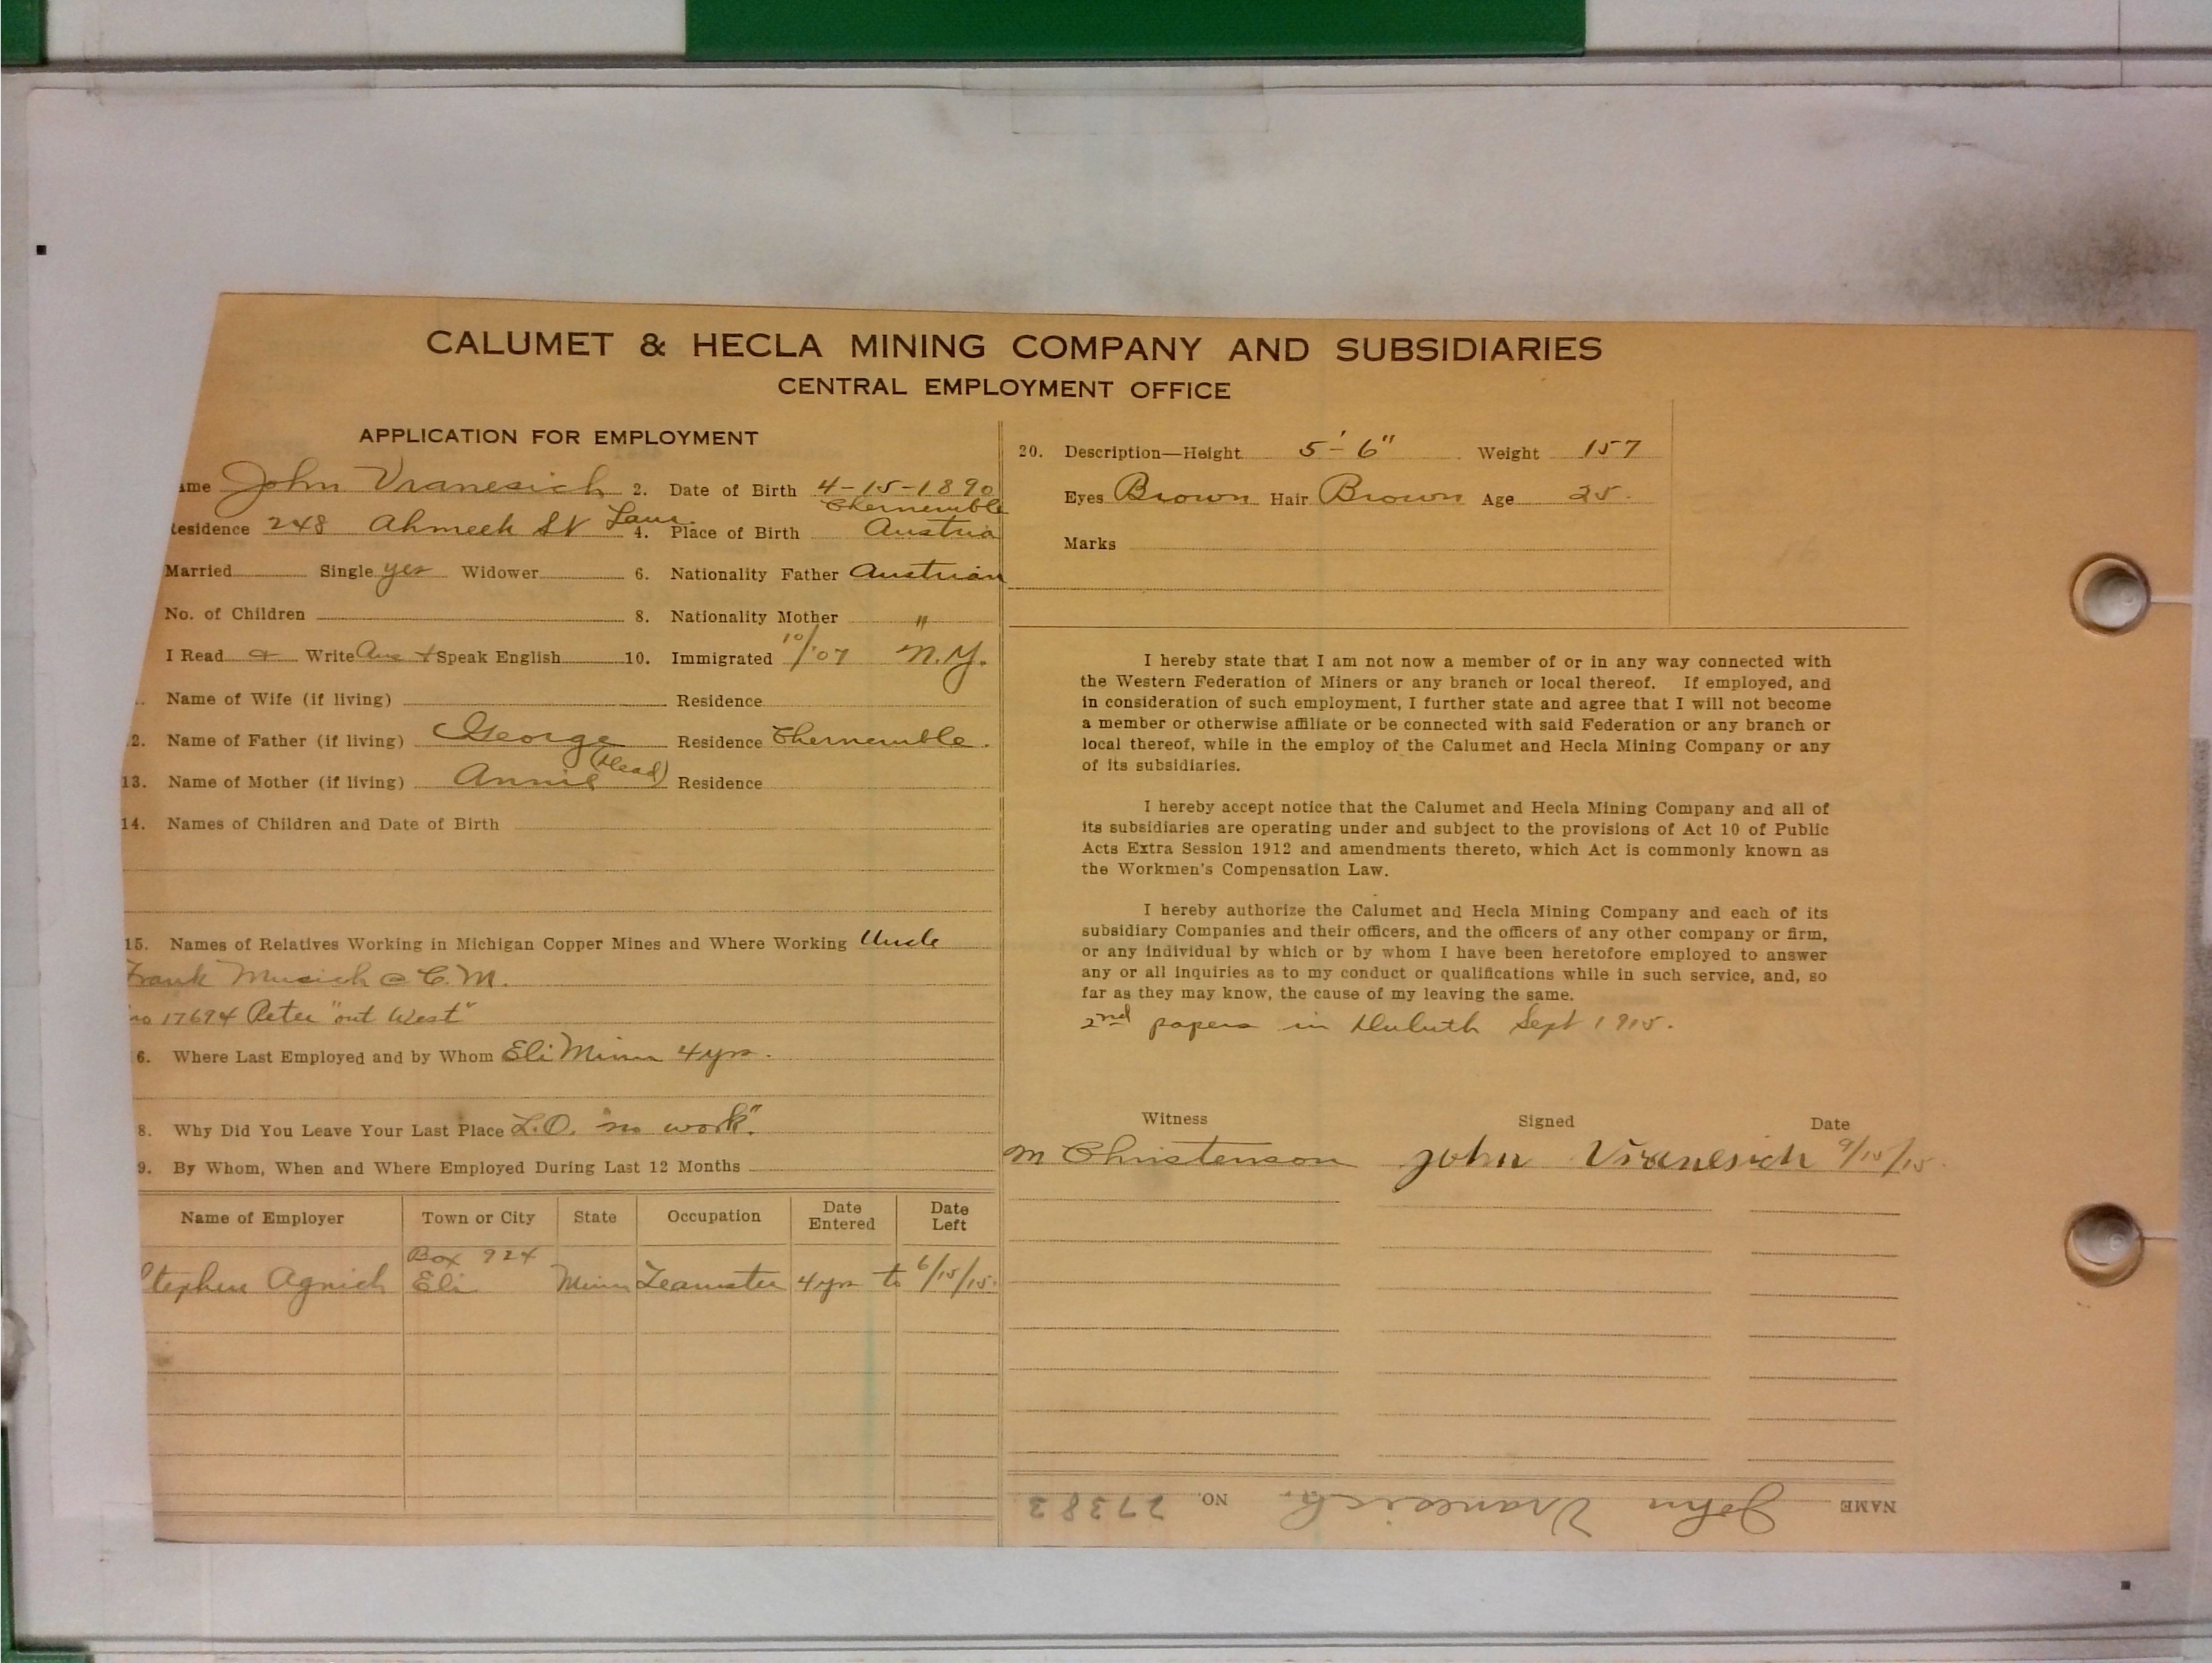 CALUMET & HECLA MINING COMPANY AND SUBSIDIARIES
CENTRAL EMPLOYMENT OFFICE
APPLICATION FOR EMPLOYMENT
ame John Vranesich 2. Date of Birth 4-15-1890
Chernemble
esidence 248 Ahmeek St Laur. 4. Place of Birth Austria
Married Single yes Widower 6. Nationality Father Austrian
No. of Children 8. Nationality Mother "
I Read & Write Aus + Speak English 10. Immigrated 10/'07 N.Y.
Name of Wife (if living) Residence
2. Name of Father (if living) George Residence Chernemble.
13. Name of Mother (if living) Annie (Dead) Residence
14. Names of Children and Date of Birth
15. Names of Relatives Working in Michigan Copper Mines and Where Working Uncle
Frank Musich @ C. M.
no 17694 Peter "out West"
6. Where Last Employed and by Whom Eli Minn 4 yrs.
8. Why Did You Leave Your Last Place L.O. "no work".
9. By Whom, When and Where Employed During Last 12 Months
Name of Employer Town or City State Occupation Date Entered Date Left
Box 924
Stephen Agnich Eli Minn Teamster 4 yrs to 6/15/15.
20. Description—Height 5'-6" Weight 157
Eyes Brown Hair Brown Age 25.
Marks
I hereby state that I am not now a member of or in any way connected with
the Western Federation of Miners or any branch or local thereof. If employed, and
in consideration of such employment, I further state and agree that I will not become
a member or otherwise affiliate or be connected with said Federation or any branch or
local thereof, while in the employ of the Calumet and Hecla Mining Company or any
of its subsidiaries.
I hereby accept notice that the Calumet and Hecla Mining Company and all of
its subsidiaries are operating under and subject to the provisions of Act 10 of Public
Acts Extra Session 1912 and amendments thereto, which Act is commonly known as
the Workmen's Compensation Law.
I hereby authorize the Calumet and Hecla Mining Company and each of its
subsidiary Companies and their officers, and the officers of any other company or firm,
or any individual by which or by whom I have been heretofore employed to answer
any or all inquiries as to my conduct or qualifications while in such service, and, so
far as they may know, the cause of my leaving the same.
2nd papers in Duluth Sept 1915.
Witness Signed Date
M Christenson John Vranesich 9/15/15
NAME John Vranesich. NO. 27383